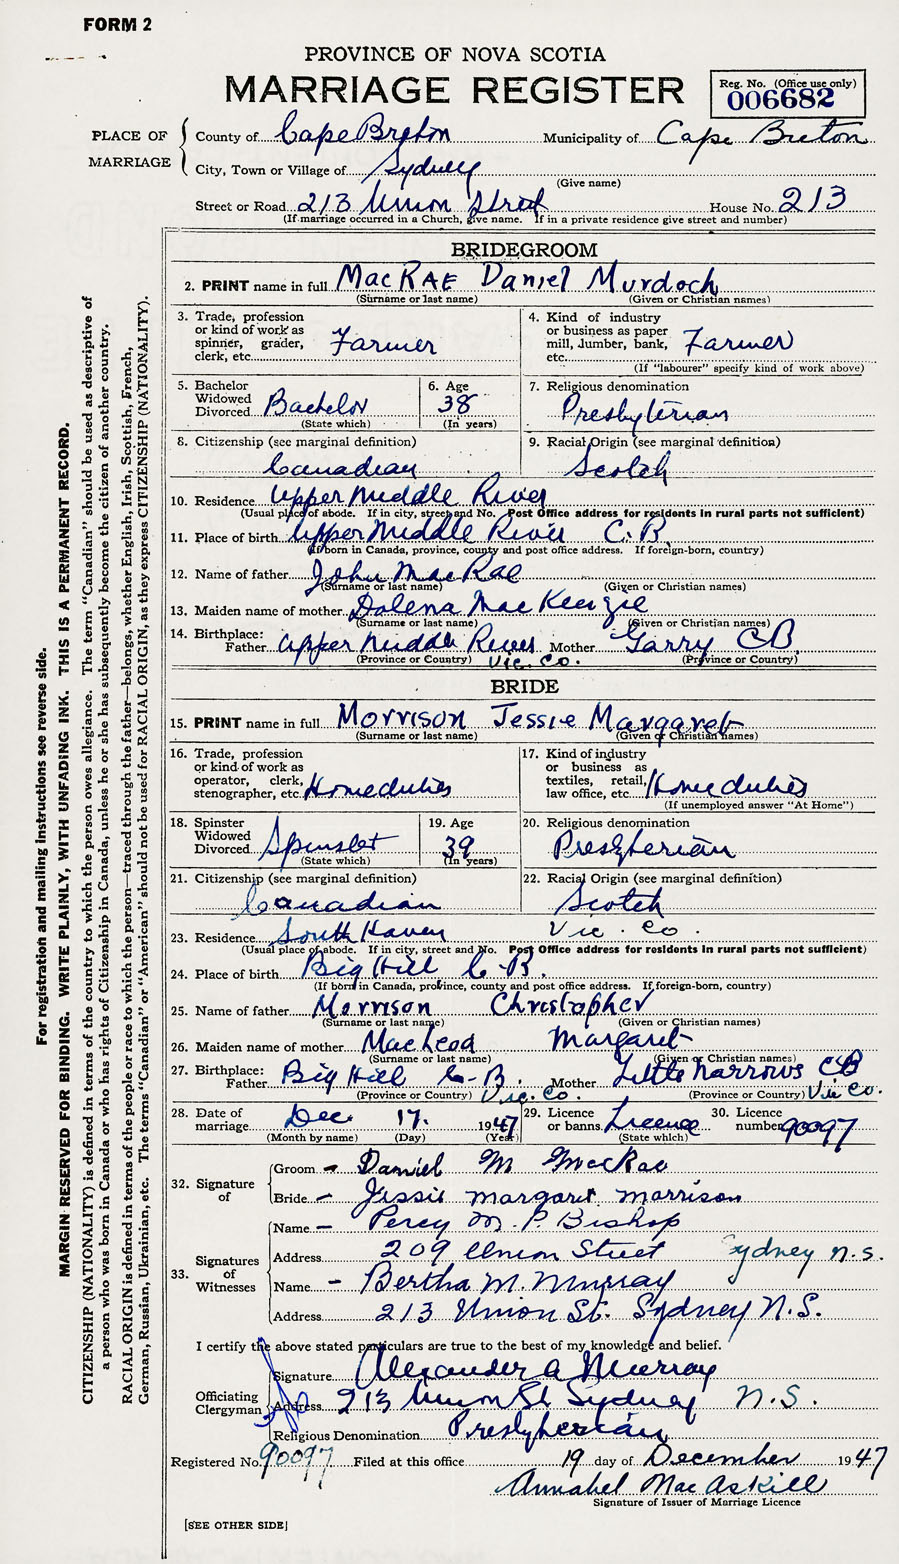 FORM 2
PROVINCE OF NOVA SCOTIA
MARRIAGE REGISTER
Reg. No. (Office use only)
006682
PLACE OF MARRIAGE
County of Cape Breton Municipality of Cape Breton
City, Town or Village of Sydney
(Give name)
Street or Road 213 Union Street House No. 213
(If marriage occurred in a Church, give name. If in a private residence give street and number)
BRIDEGROOM
2. PRINT name in full MacRAE Daniel Murdoch
(Surname or last name) (Given or Christian names)
3. Trade, profession or kind of work as spinner, grader, clerk, etc. Farmer
4. Kind of industry or business as paper mill, lumber, bank, etc. Farmer
(If "labourer" specify kind of work above)
5. Bachelor Widowed Divorced Bachelor
(State which)
6. Age 38
(In years)
7. Religious denomination
Presbyterian
8. Citizenship (see marginal definition)
Canadian
9. Racial Origin (see marginal definition)
Scotch
10. Residence Upper Middle River
(Usual place of abode. If in city, street and No. Post Office address for residents in rural parts not sufficient)
11. Place of birth Upper Middle River C.B.
(If born in Canada, province, county and post office address. If foreign-born, country)
12. Name of father John MacRae
(Surname or last name) (Given or Christian names)
13. Maiden name of mother Dolena MacKenzie
(Surname or last name) (Given or Christian names)
14. Birthplace:
Father Upper Middle River Mother Garry CB
(Province or Country) Vic. Co. (Province or Country)
BRIDE
15. PRINT name in full Morrison Jessie Margaret
(Surname or last name) (Given or Christian names)
16. Trade, profession or kind of work as operator, clerk, stenographer, etc. Home duties
17. Kind of industry or business as textiles, retail, law office, etc. Home duties
(If unemployed answer "At Home")
18. Spinster Widowed Divorced Spinster
(State which)
19. Age 39
(In years)
20. Religious denomination
Presbyterian
21. Citizenship (see marginal definition)
Canadian
22. Racial Origin (see marginal definition)
Scotch
23. Residence South Haven Vic. Co.
(Usual place of abode. If in city, street and No. Post Office address for residents in rural parts not sufficient)
24. Place of birth Big Hill C.B.
(If born in Canada, province, county and post office address. If foreign-born, country)
25. Name of father Morrison Christopher
(Surname or last name) (Given or Christian names)
26. Maiden name of mother MacLeod Margaret
(Surname or last name) (Given or Christian names)
27. Birthplace:
Father Big Hill C.B. Mother Little Narrows CB
(Province or Country) Vic. Co. (Province or Country) Vic Co.
28. Date of marriage Dec 17. 1947
(Month by name) (Day) (Year)
29. Licence or banns Licence
(State which)
30. Licence number 90097
32. Signature of
Groom - Daniel M McRae
Bride - Jessie Margaret Morrison
33. Signatures of Witnesses
Name - Percy M. P. Bishop
Address 209 Union Street Sydney N.S.
Name - Bertha M. Murray
Address 213 Union St. Sydney N.S.
I certify the above stated particulars are true to the best of my knowledge and belief.
Officiating Clergyman
Signature Alexander A Murray
Address 213 Union St Sydney N.S.
Religious Denomination Presbyterian
Registered No. 90097 Filed at this office 19 day of December 1947
Annabel MacAskill
Signature of Issuer of Marriage Licence
[SEE OTHER SIDE]
For registration and mailing instructions see reverse side.
MARGIN RESERVED FOR BINDING. WRITE PLAINLY, WITH UNFADING INK. THIS IS A PERMANENT RECORD.
CITIZENSHIP (NATIONALITY) is defined in terms of the country to which the person owes allegiance. The term "Canadian" should be used as descriptive of
a person who was born in Canada or who has rights of Citizenship in Canada, unless he or she has subsequently become the citizen of another country.
RACIAL ORIGIN is defined in terms of the people or race to which the person—traced through the father—belongs, whether English, Irish, Scottish, French,
German, Russian, Ukrainian, etc. The terms "Canadian" or "American" should not be used for RACIAL ORIGIN, as they express CITIZENSHIP (NATIONALITY).